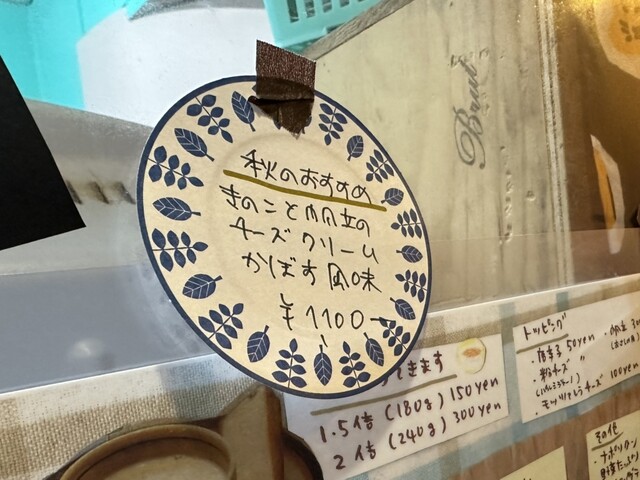 秋のおすすめ
きのこと帆立の
チーズクリーム
かぼす風味
¥1100-
Brut
できます
1.5倍 (180g) 150yen
2倍 (240g) 300yen
トッピング
・唐辛子 50yen
・粉チーズ 〃
・モッツァレラチーズ 100yen
・帆立
その他
・ナポリタン